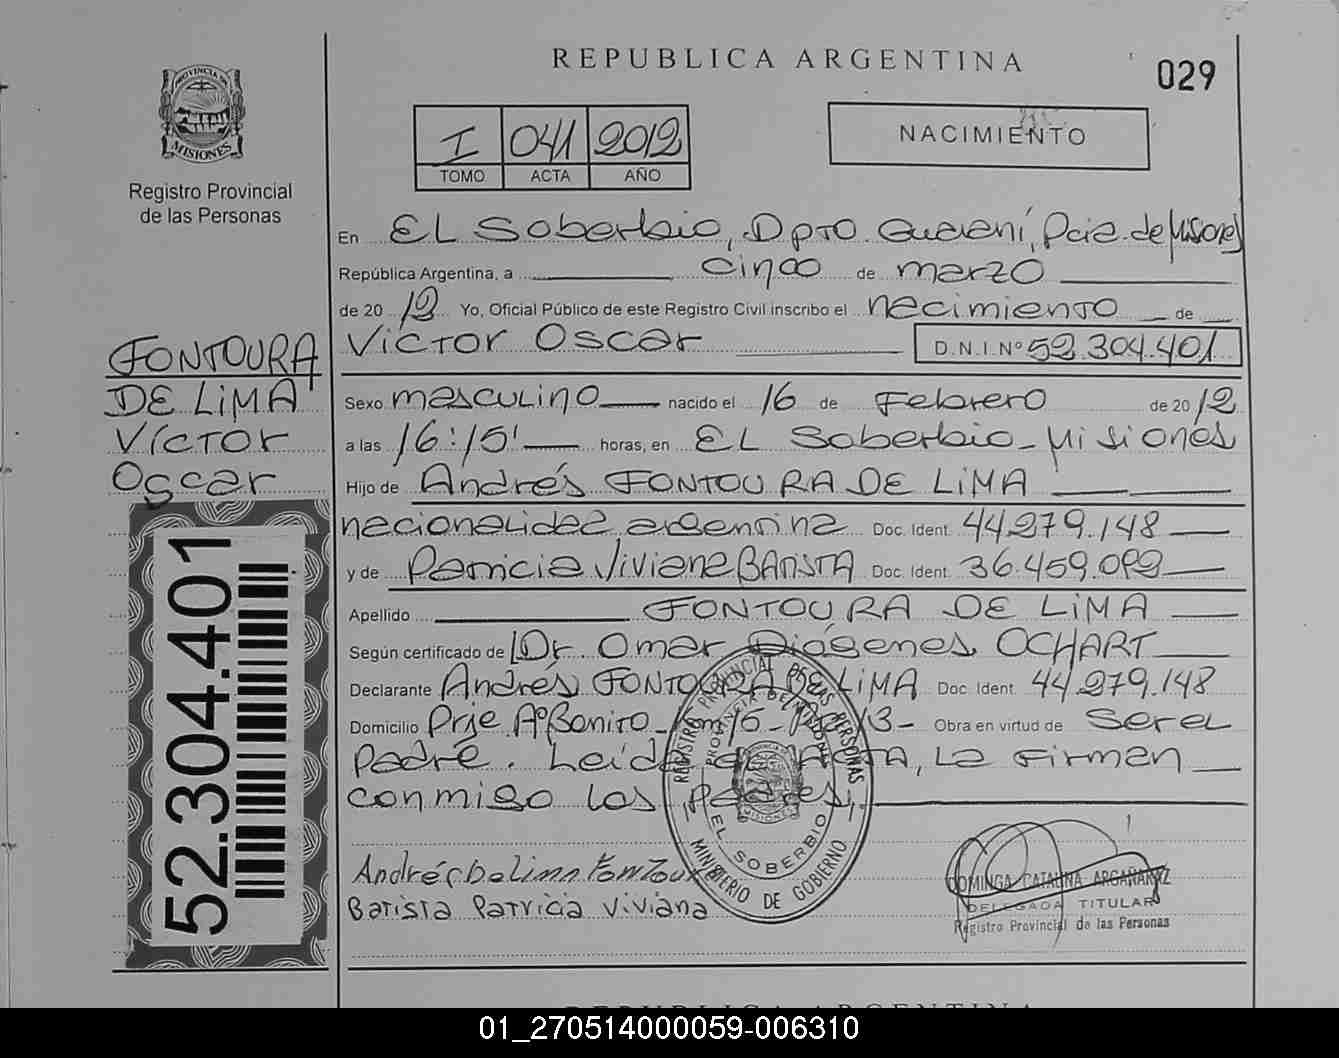 REPUBLICA ARGENTINA
029
PROVINCIA DE
MISIONES
Registro Provincial
de las Personas
I 041 2012
TOMO ACTA AÑO
NACIMIENTO
En EL Soberbio, Dpto. Guaraní, Pcia. de Misiones
República Argentina, a cinco de marzo
de 2012 Yo, Oficial Público de este Registro Civil inscribo el nacimiento de
Victor Oscar D.N.I.Nº 52.304.401
FONTOURA
DE LiMA
Víctor
Oscar
52.304.401
Sexo masculino nacido el 16 de Febrero de 2012
a las 16:15' horas, en EL Soberbio - Misiones
Hijo de Andrés FONTOURA DE LiMA
nacionalidad argentina Doc. Ident. 44.279.148
y de Patricia Viviana BATISTA Doc. Ident. 36.459.099
Apellido FONTOURA DE LiMA
Según certificado de Dr. Omar Diógenes OCHART
Declarante Andrés FONTOURA DE LiMA Doc. Ident. 44.279.148
Domicilio Prje Aº Bonito - Km 15 - 13 - Obra en virtud de Ser el
Padre. Leída el Acta, La Firman
conmigo los padres,
REGISTRO PROVINCIAL DE LAS PERSONAS
PROVINCIA DE MISIONES
MISIONES
EL SOBERBIO
MINISTERIO DE GOBIERNO
Andrés De Lima Fontoura
Batista Patricia Viviana
DOMINGA CATALINA ARGAÑARAZ
DELEGADA TITULAR
Registro Provincial de las Personas
REPUBLICA ARGENTINA
01_270514000059-006310